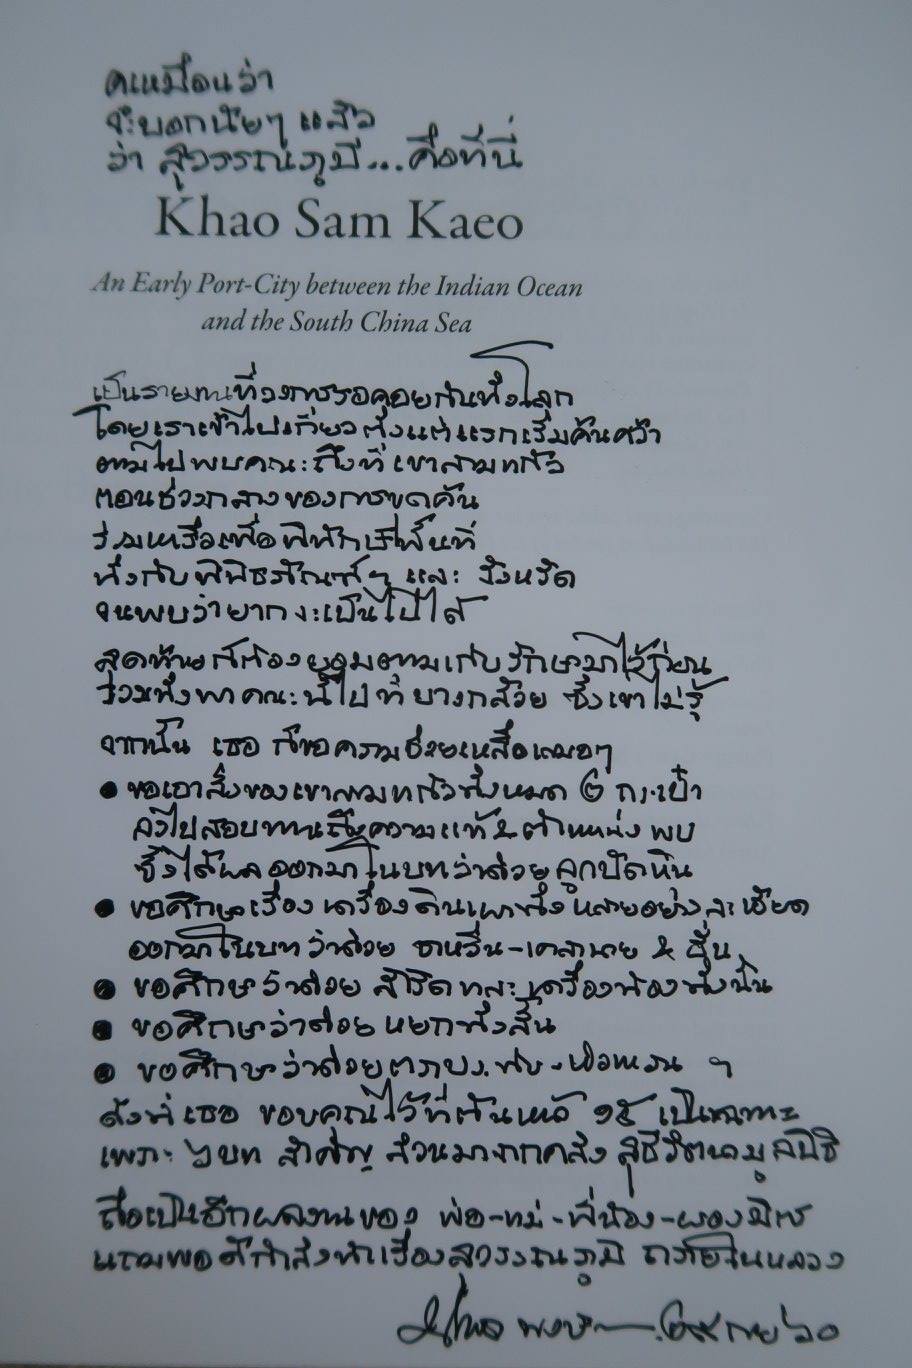 คเหมือนว่า
จะบอกนัยๆ แล้ว
ว่า สุวรรณภูมิ...คือที่นี่
Khao Sam Kaeo
An Early Port-City between the Indian Ocean
and the South China Sea
เป็นรายงานที่วงการรอคอยกันทั้งโลก
โดยเราเข้าไปเกี่ยวตั้งแต่แรกเริ่มค้นคว้า
ตามไปพบคณะถึงที่เขาสามแก้ว
ตอนช่วงกลางของการขุดค้น
ร่วมหารือเพื่อพิทักษ์พื้นที่
ทั้งกับพิพิธภัณฑ์ฯ และ จังหวัด
จนพบว่ายากจะเป็นไปได้
สุดท้ายก็ต้องยอมตามเก็บรักษามาไว้ก่อน
รวมทั้งพาคณะนี้ไปที่บางกล้วย ซึ่งเขาไม่รู้
จากนั้น เธอ ก็ขอความช่วยเหลือเสมอๆ
• ขอเอาสิ่งของเขาสามแก้วทั้งหมด ๒ กระเป๋า
ลงไปสอบทานถึงความแท้ & ตำแหน่งพบ
ซึ่งได้ผลออกมาในบทว่าด้วยลูกปัดหิน
• ขอศึกษาเรื่องเครื่องดินเผาทั้งหลายอย่างละเอียด
ออกมาในบทว่าด้วย ซาหวิ่น-คาลานาย & อื่น
• ขอศึกษาว่าด้วย สำริดและเครื่องทองทั้งนั้น
• ขอศึกษาว่าด้วยหยกทั้งสิ้น
• ขอศึกษาว่าด้วยตราประทับ - หัวแหวน ฯ
ดังที่ เธอ ขอบคุณไว้ที่ต้นหน้า ๑๕ เป็นเฉพาะ
เพราะ ๖ บท สำคัญ ล้วนมาจากคลัง สุธีรัตนามูลนิธิ
ถือเป็นอีกผลงานของ พ่อ-แม่-พี่น้อง-ผองมิตร
แถมพอดีกำลังทำเรื่องสุวรรณภูมิ ถวายในหลวง
๒๙ กย ๖๐